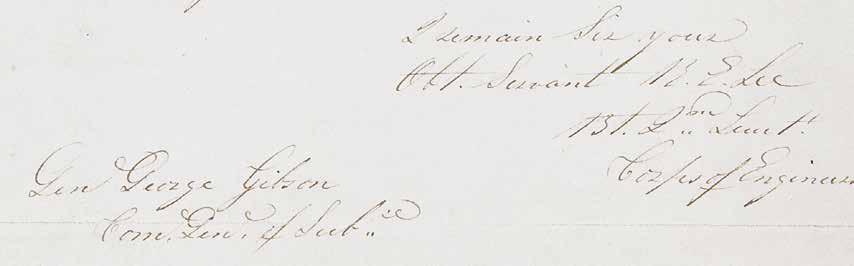 I remain Sir your
Obt. Servant R. E. Lee
Bt. 2nd Lieut.
Corps of Engineers
Gen George Gibson
Com. Genl. of Subce